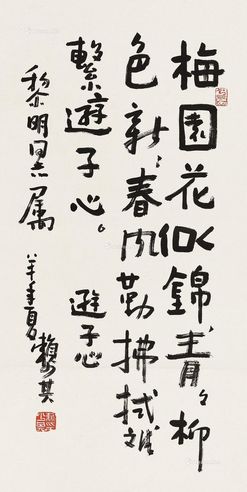 梅園花似錦，青々柳
色新；春风勤拂拭
繫遊子心。 遊子心
黎明同志属
羊年夏 賴少其